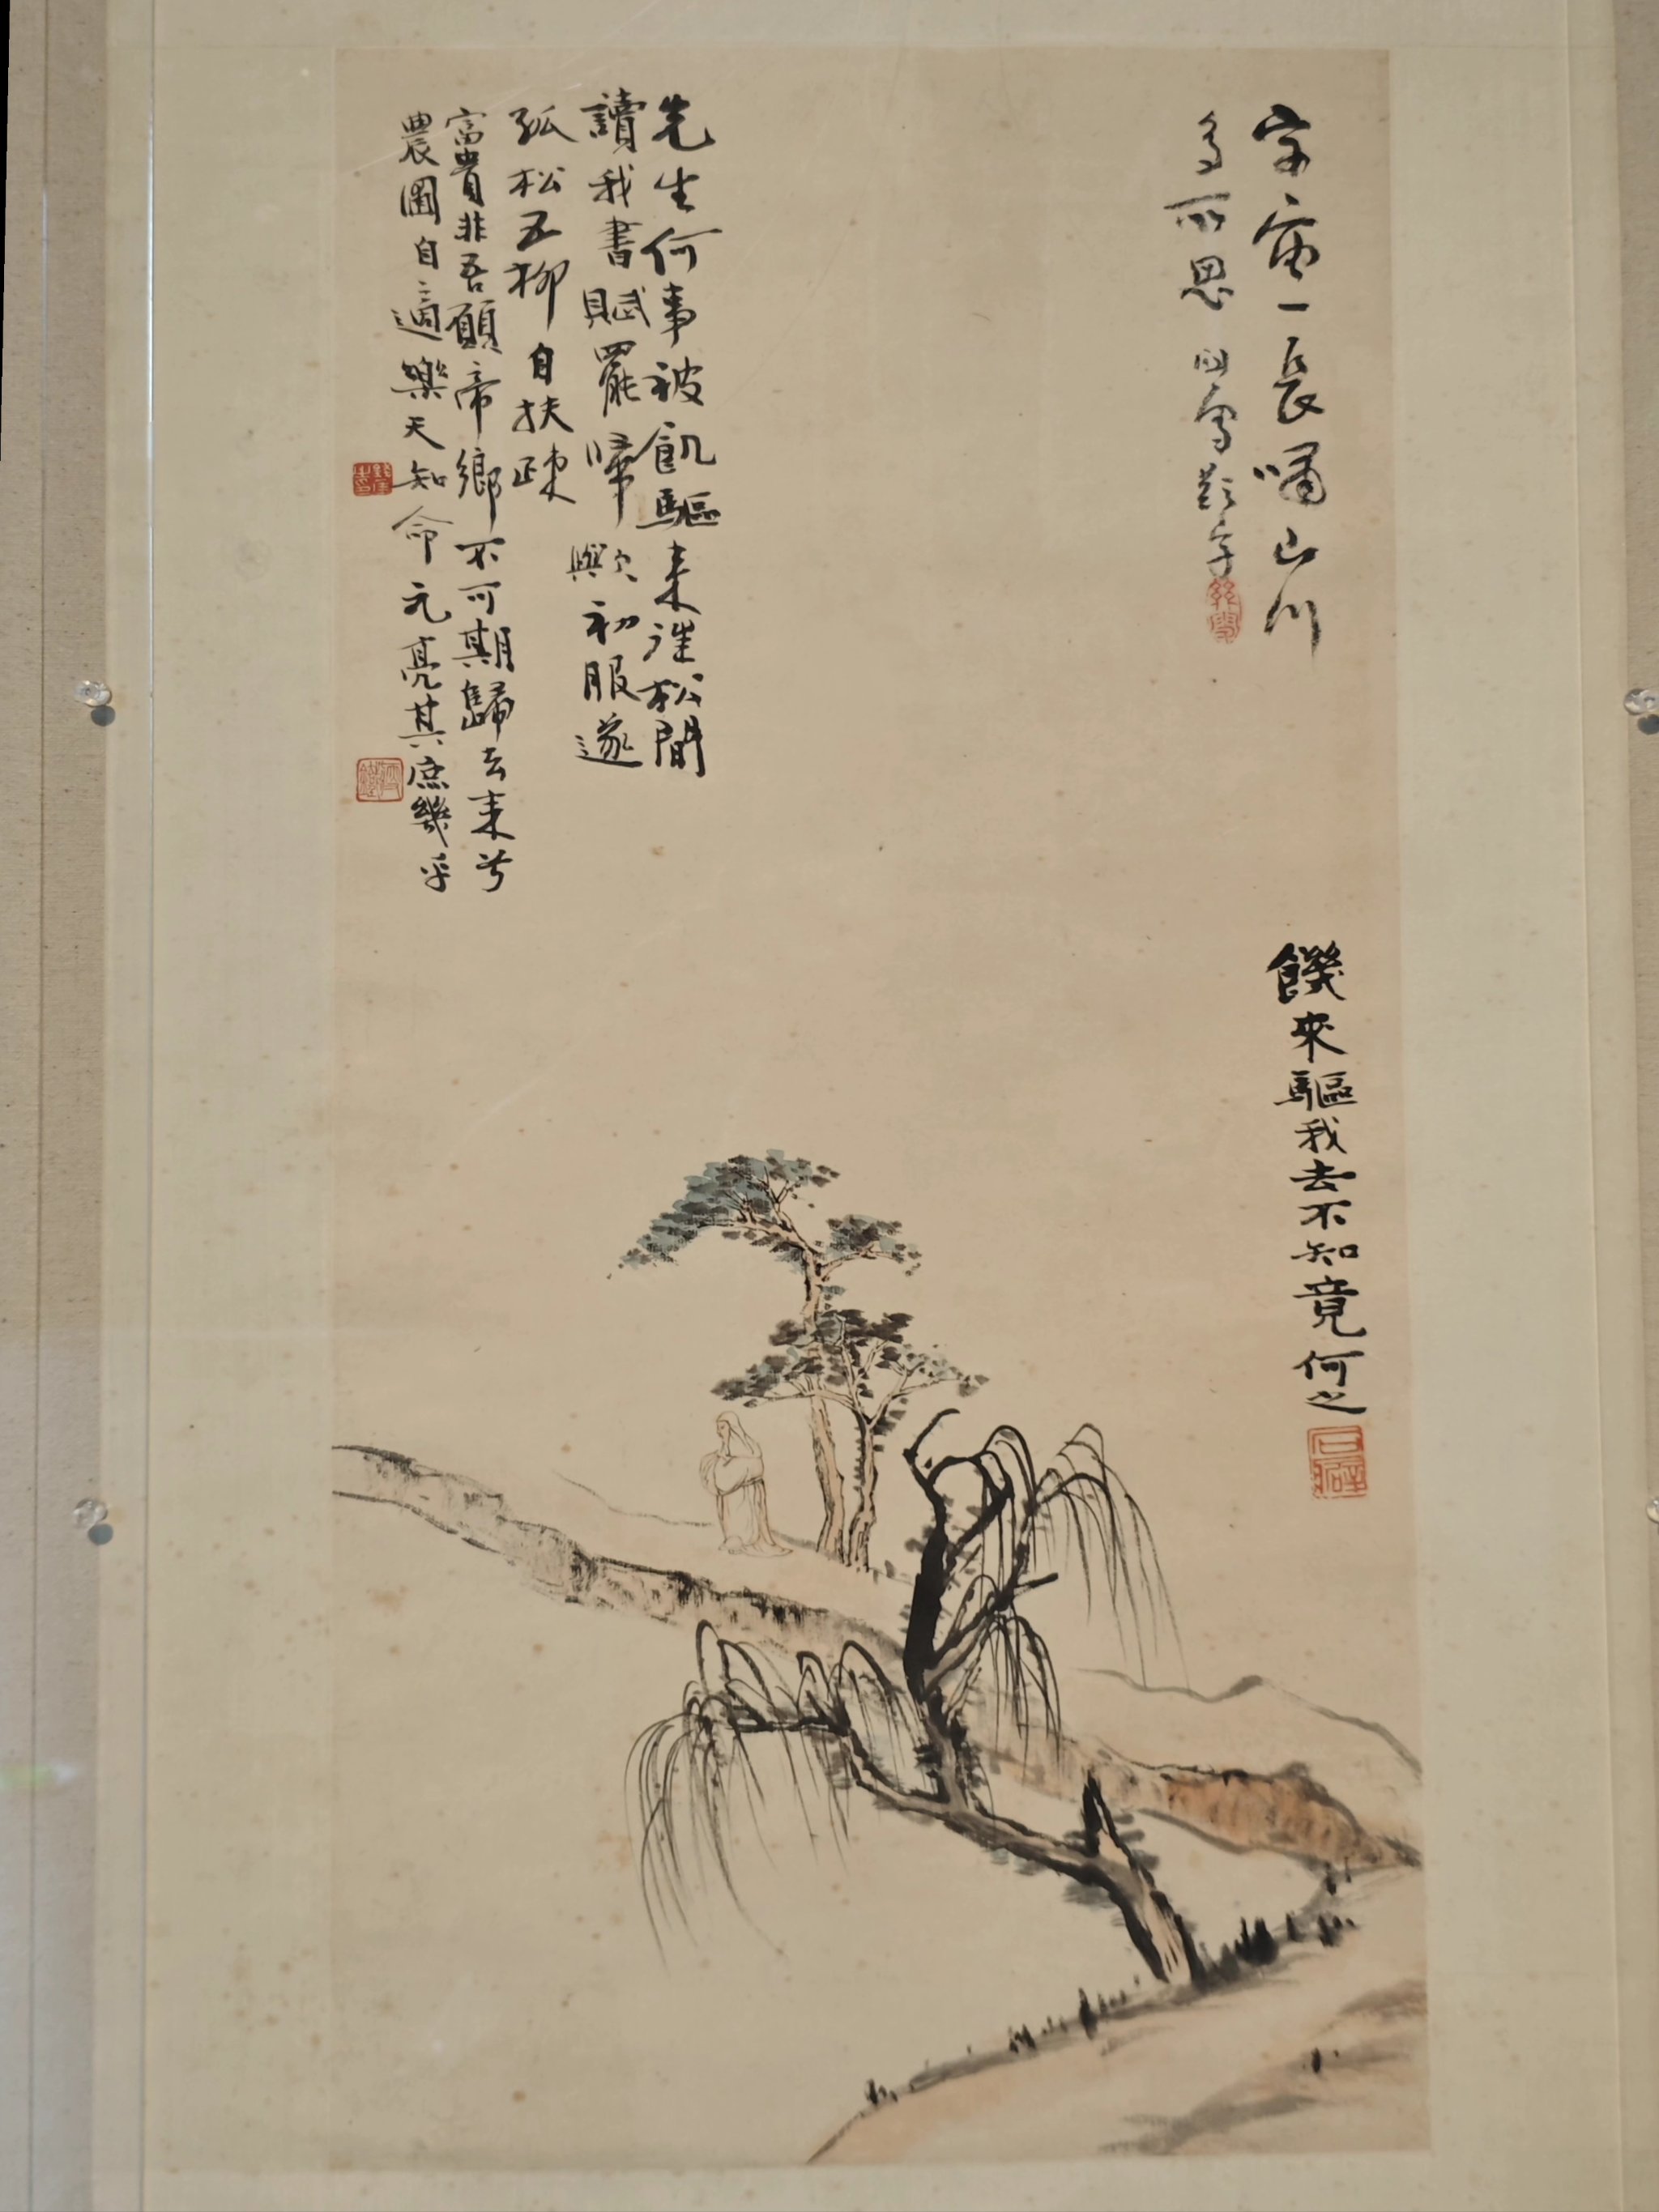 宇宙一長嘯山川
多所思
饑來驅我去不知竟何之
先生何事被飢驅来往松間
讀我書賦罷歸歟初服遂
孤松五柳自扶疎
富貴非吾願帝鄉不可期歸去来兮
農圃自適樂天知命元亮其庶幾乎